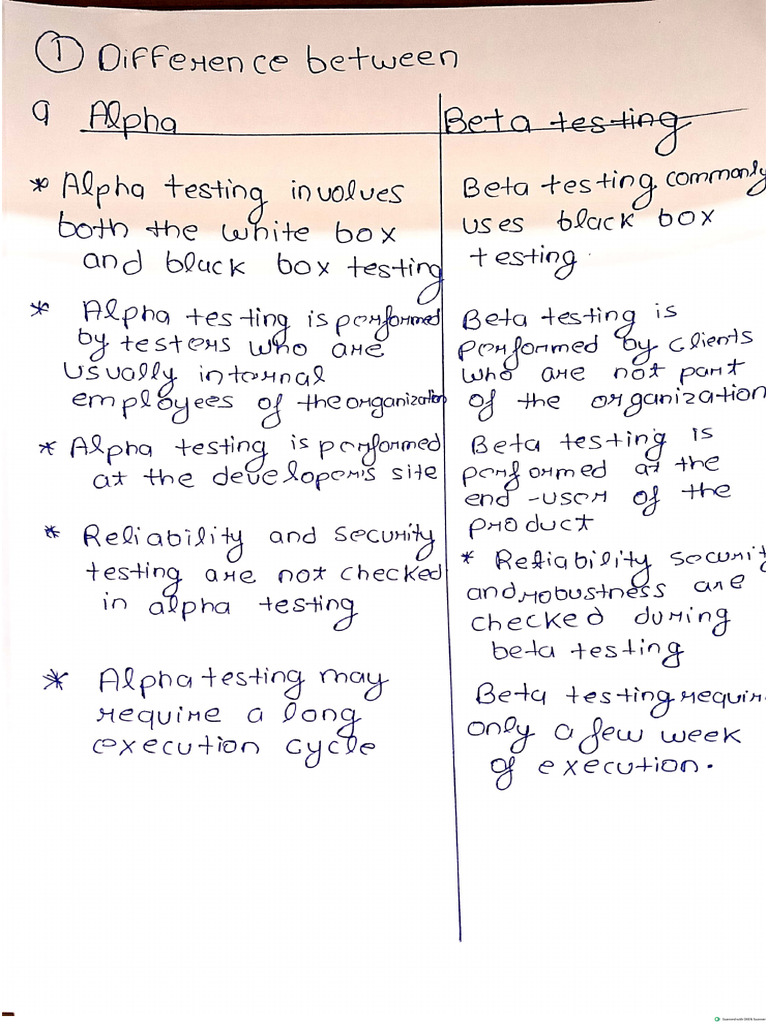 ① Difference between
a Alpha
Beta testing
* Alpha testing involves
both the white box
and black box testing
* Alpha testing is performed
by testers who are
usually internal
employees of the organization
* Alpha testing is performed
at the developer's site
* Reliability and security
testing are not checked
in alpha testing
* Alpha testing may
require a long
execution cycle
Beta testing commonly
uses black box
testing.
Beta testing is
performed by clients
who are not part
of the organization
Beta testing is
performed at the
end -user of the
product
* Reliability securit
and robustness are
checked during
beta testing
Beta testing requir
only a few week
of execution.